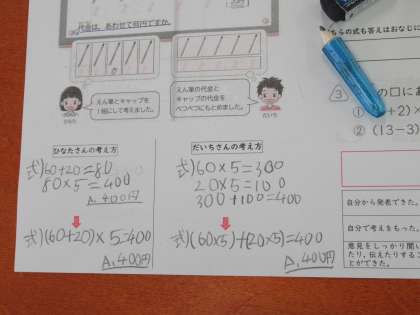 代金は、あわせて何円ですか。
えん筆とキャップを
1組にして考えました。
ひなた
えん筆の代金と
キャップの代金を
べつべつにもとめました。
だいち
ちらの式も答えはおなじに
③
の口にあ
①
+2)×
② (13-3)
ひなたさんの考え方
式)60+20=80
80×5=400
A.400円
式)(60+20)×5=400
A.400円
だいちさんの考え方
式)60×5=300
20×5=100
300+100=400
式)(60×5)+(20×5)=400
A.400円
自分から発表できた。
自分で考えをもった。
意見をしっかり聞い
たり、伝えたりするこ
とができた。